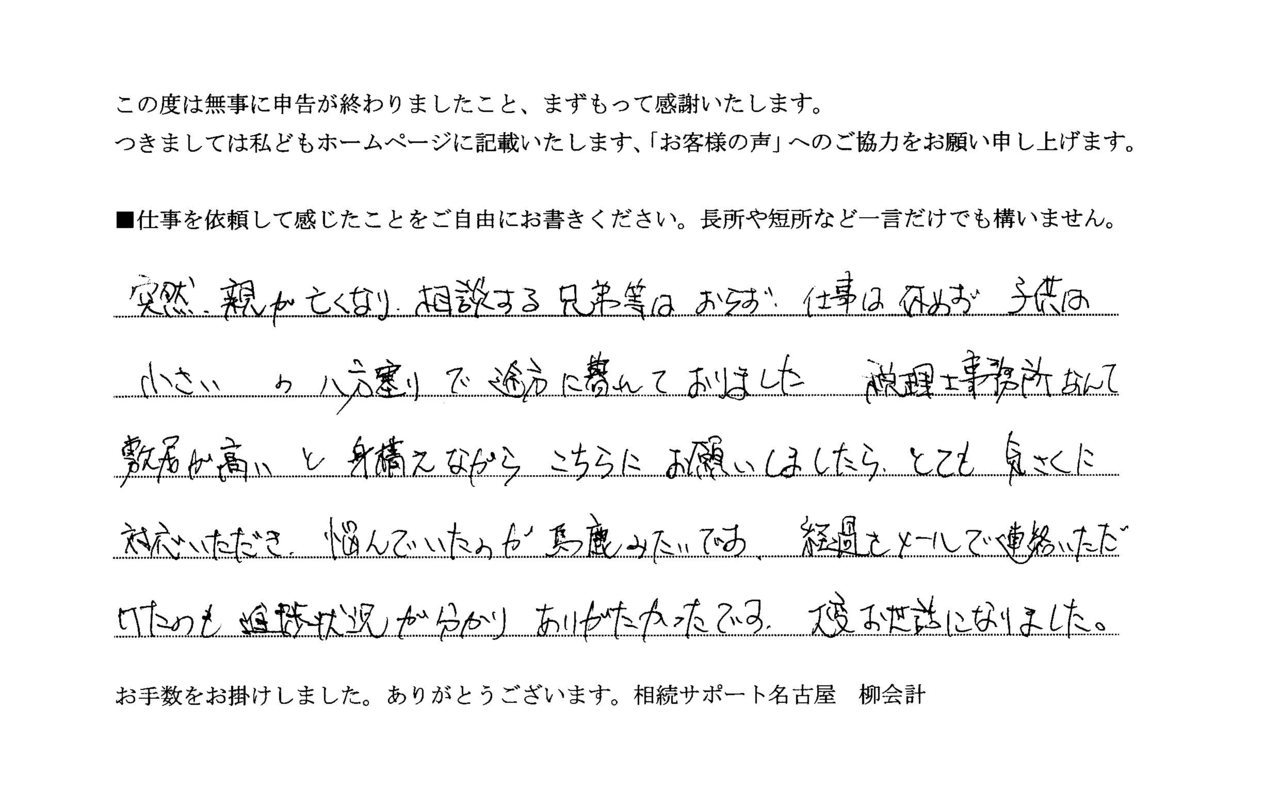 この度は無事に申告が終わりましたこと、まずもって感謝いたします。
つきましては私どもホームページに記載いたします、「お客様の声」へのご協力をお願い申し上げます。
■仕事を依頼して感じたことをご自由にお書きください。長所や短所など一言だけでも構いません。
突然、親が亡くなり、相談する兄弟等はおらず、仕事は休めず 子供は
小さい の八方塞りで途方に暮れておりました 税理士事務所なんて
敷居が高い と 身構えながら こちらに お願いしましたら、とても 気さくに
対応いただき、悩んでいたのが馬鹿みたいです、経過をメールでご連絡いただ
けたのも 進捗状況が分かり ありがたかったです、大変お世話になりました。
お手数をお掛けしました。ありがとうございます。相続サポート名古屋　柳会計